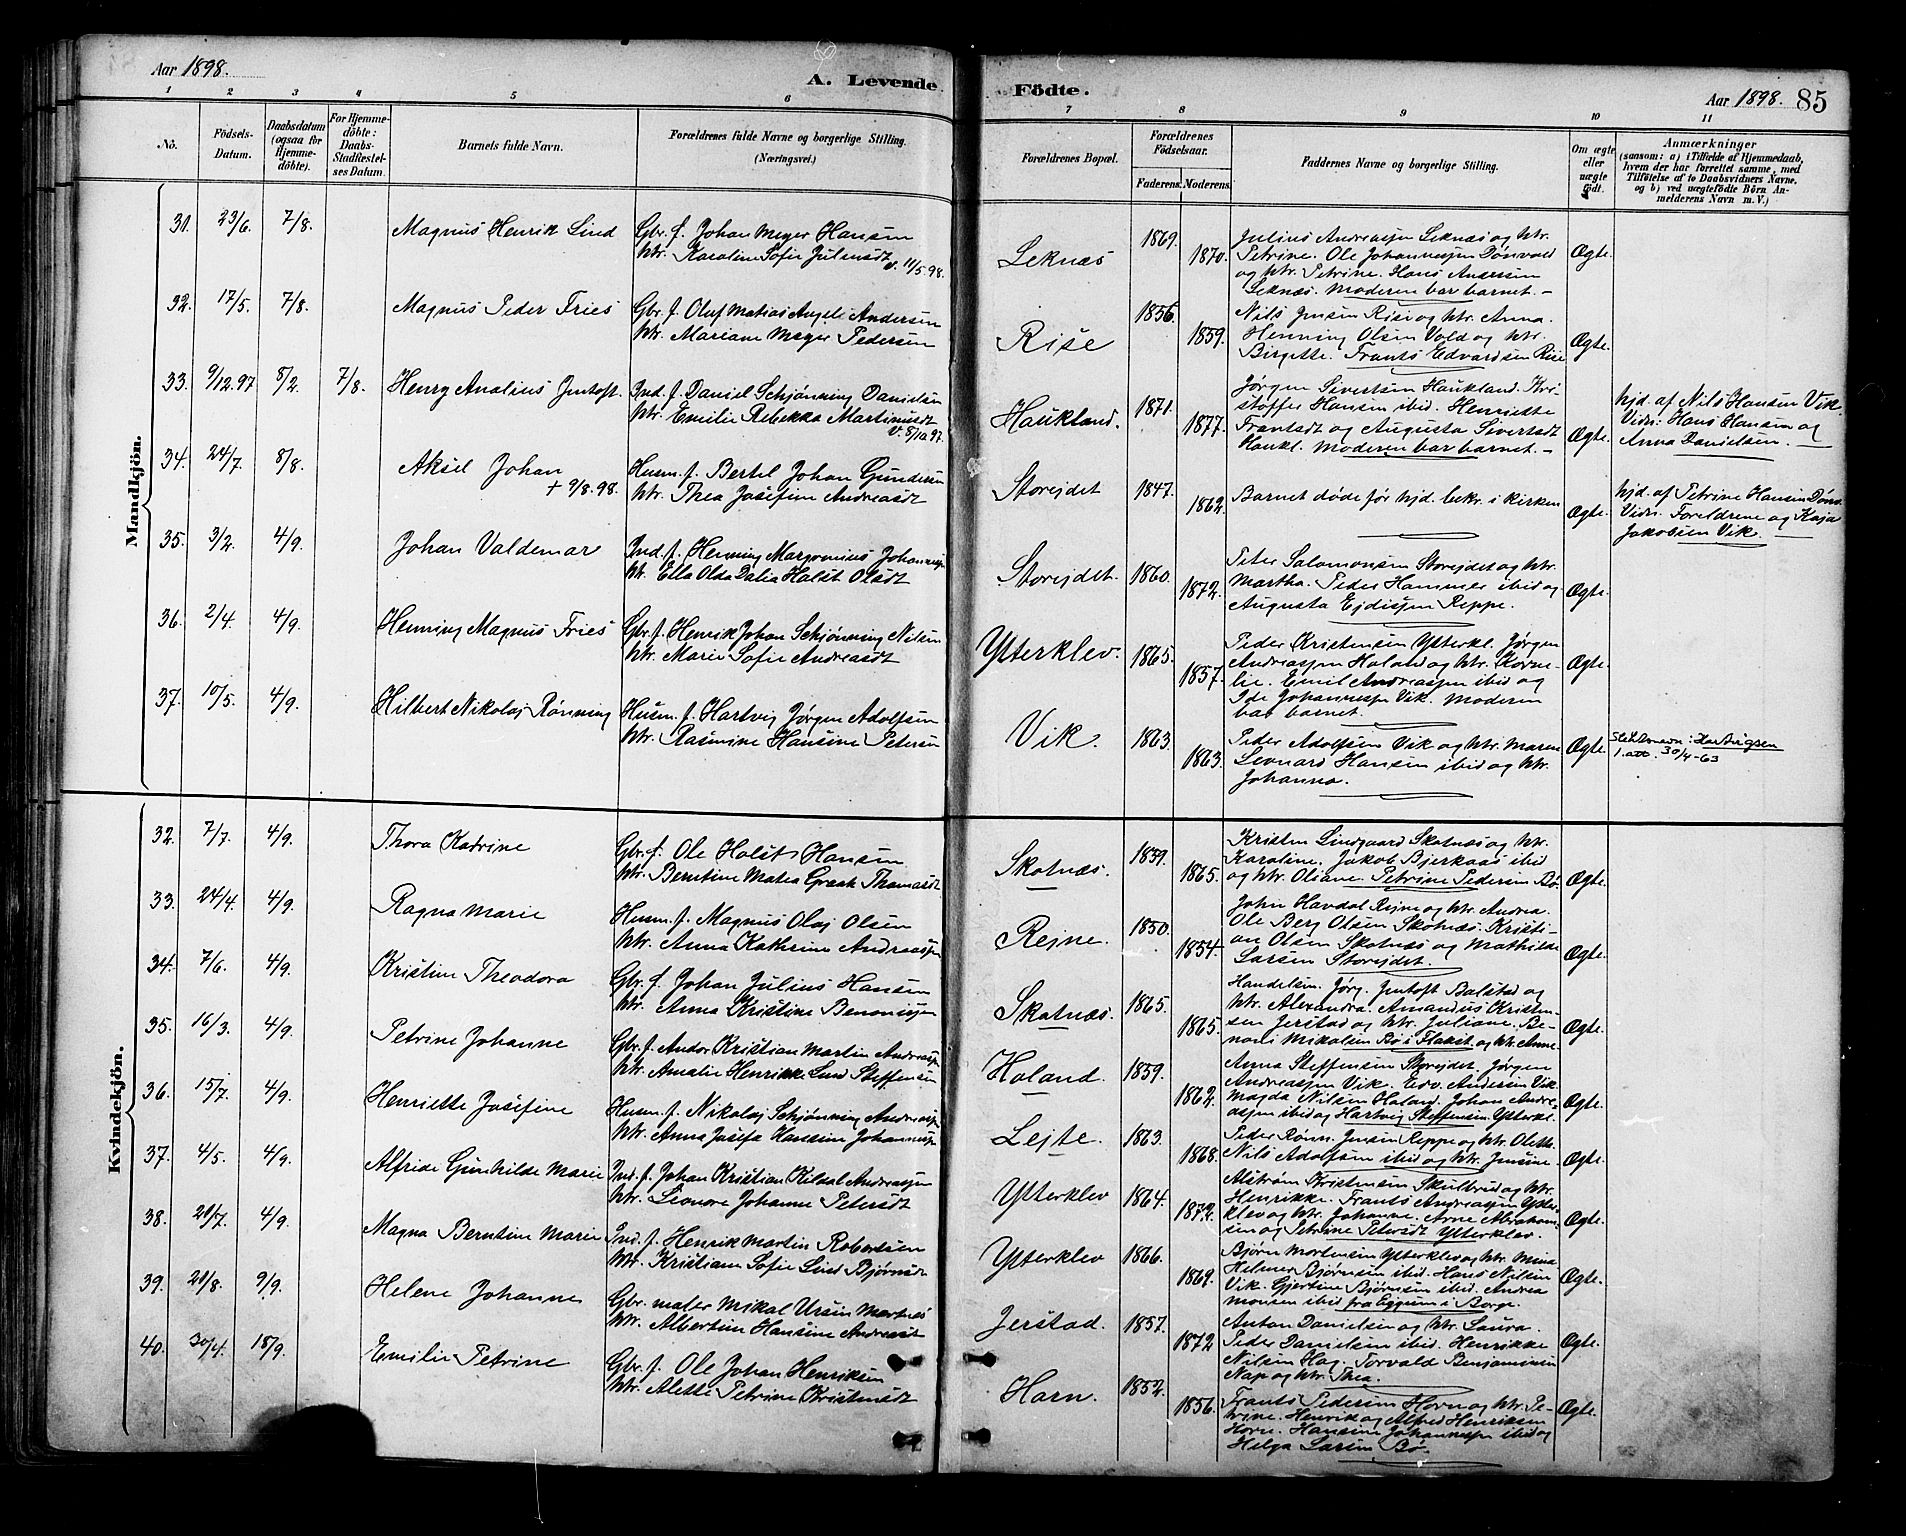 Aar 1898.
A. Levende
Födte.
Aar 1898. 85
1 2 3 4 5 6 7 8 9 10 11
No.
Födsels-Datum.
Daabsdatum (ogsaa for Hjemmedöbte).
For Hjemmedöbte: Daabs-Stadfæstelses Datum.
Barnets fulde Navn.
Forældrenes fulde Navne og borgerlige Stilling. (Næringsvei.)
Forældrenes Bopæl.
Forældrenes Födselsaar.
Faderens. Moderens.
Faddernes Navne og borgerlige Stilling.
Om ægte eller uægte födt.
Anmærkninger
(saasom: a) i Tilfælde af Hjemmedaab, hvem der har forrettet samme, med Tilföielse af to Daabsvidners Navne, og b) ved uægtefödte Börn Anmelderens Navn m. V.)
Mandkjön.
31. 23/6. 7/8. Magnus Henrik Lind
Gbr. f. Johan Meyer Hansen
htr. Karoline Sofie Julensdt
v. 11/5.98.
Leknæs 1869. 1870.
Julius Andreassen Leknæs og htr.
Petrine. Ole Johannessen Dønvold
og htr. Petrine. Hans Andersen
Leknæs. Moderen bar barnet. -
Ægte.
32. 17/5. 7/8. Magnus Peder Fries
Gbr. f. Oluf Matias Angel Andersen
htr. Mariane Meyer Pedersen
Rise 1856. 1859.
Nils Jensen Rise og htr. Anna.
Henning Olsen Vold og htr.
Birgette. Frants Edvardsen Rise
Ægte.
33. 9/12.97 8/2. 7/8. Henry Analius Jentoft.
Ind. f. Daniel Schjønning Danielsen
htr. Emilie Rebekka Martinusdt
v. 8/10 97.
Haukland. 1871. 1877.
Jørgen Sivertsen Haukland. Kri-
stoffer Hansen ibid. Henriette
Frantsdt og Augusta Sivertsdt
Haukl. Moderen bar barnet. -
Ægte.
hjd. af Nils Hansen Vik.
Vidn: Hans Hansen og
Anna Danielsen.
34. 24/7. 8/8. Aksel Johan
+ 9/8.98.
Husm. f. Bertel Johan Gundersen
htr. Thea Josefine Andreasdt
Storejdet 1847. 1862.
Barnet døde før hjd. bekr. i kirken
Ægte.
hjd. af Petrine Hansen Dønv.
Vidn. Foreldrene og Kaja
Jakobsen Vik.
35. 3/2. 4/9. Johan Valdemar
Ind. f. Henning Margonius Johannessen
htr. Ella Olda Dalia Holst Olsdt
Storejdet. 1860. 1872.
Peter Salomonsen Storejdet og htr.
Martha. Peder Hammer ibid og
Augusta Ejdissen Reppe.
Ægte.
36. 2/4. 4/9. Henning Magnus Fries
Gbr. f. Henrik Johan Schjønning Nilsen
htr. Marie Sofie Andreasdt
Ytterklev. 1865. 1857.
Peder Kristensen Ytterkl. Jørgen
Andreassen Holand og htr. Korne-
lie. Emil Andreassen ibid og
Ide Johannessen Vik. Moderen
bar barnet.
Ægte.
37. 10/5. 4/9. Hilbert Nikolaj Rønning
Husm. f. Hartvig Jørgen Adolfsen
htr. Rasmine Hansine Petersen
Vik. 1863. 1863.
Peder Adolfsen Vik og htr. Maren
Leonard Hansen ibid og htr.
Johanna.
Ægte.
Slektsnavn: Hartvigsen
l. att. 30/4-63
Kvindekjön.
32. 7/7. 4/9. Thora Katrine
Gbr. f. Ole Holst Hansen
htr. Berntine Matea Graak Thomasdt
Skotnæs. 1859. 1865.
Kristen Lindgaard Skotnæs og htr.
Karoline. Jakob Bjerkaas ibid
og htr. Oliane. Petrine Pedersen Bø.
Ægte.
33. 24/4. 4/9. Ragna Marie
Husm. f. Magnus Olaj Olsen
htr. Anna Kathrine Andreassen
Rejne. 1850. 1854.
John Havdal Rejne og htr. Andrea.
Ole Berg Olsen Skotnæs. Kristi-
an Olsen Skotnæs og Mathilde
Larsen Storejdet.
Ægte.
34. 7/6. 4/9. Kristine Theodora
Gbr. f. Johan Julius Hansen
htr. Anna Kristine Benonisen
Skotnæs. 1865. 1865.
Handelsm. Jørg. Jentoft Balstad og
htr. Alexandra. Amandus Kristen-
sen Jerstad og htr. Juliane. Be-
noni Mikalsen Bø i Flakst. og htr. Anne
Ægte.
35. 16/3. 4/9. Petrine Johanne
Gbr. f. Andor Kristian Martin Andreassen
htr. Amalie Henrikke Lund Steffensen
Holand. 1859. 1862.
Anna Steffensen Storejdet. Jørgen
Andreassen Vik. Edv. Andersen Vik.
Magda Nilsen Holand. Johan Andre-
assen ibid og Hartvig Steffensen Ytterkl.
Ægte.
36. 15/7. 4/9. Henriette Josefine
Husm. f. Nikolaj Schjønning Andreassen
htr. Anna Josefa Hansine Johannessen
Lejte. 1863. 1868.
Peder Rønn. Jensen Reppe og htr. Olette
Nils Adolfsen ibid og htr. Jensine.
Ægte.
37. 4/5. 4/9. Alfride Gunhilde Marie
Ind. f. Johan Kristian Kildal Andreassen
htr. Leonore Johanne Petersdt
Ytterklev 1864. 1872.
Alstrøm Kristensen Skulbrud og htr.
Henrikke. Frants Andreassen Ytter-
klev og htr. Johanne. Arne Abraham-
sen og Petrine Petersdt Ytterklev.
Ægte.
38. 20/7. 4/9. Magna Berntine Marie
Ind. f. Henrik Martin Robertsen
htr. Kristiane Sofie Lind Bjørnsdt
Ytterklev 1866. 1869.
Bjørn Mortensen Ytterklev og htr. Mina
Helmer Bjørnsen ibid. Hans Nilsen
Vik. Gjertine Bjørnsen ibid. Andrea
Monsen ibid fra Eggum i Borge.
Ægte.
39. 20/8. 9/9. Helene Johanne
Gbr. maler Mikal Ursin Martnes
htr. Albertine Hansine Andreasdt
Jerstad. 1857. 1872
Anton Danielsen og htr. Laura.
Peder Danielsen ibid. Henrikke
Nilsen Hag. Torvald Benjaminsen
Nap og htr. Thea.
Ægte.
40. 30/4. 18/9. Emilie Petrine
Gbr. f. Ole Johan Henriksen
htr. Alette Petrine Kristensdt
Horn. 1852. 1856.
Frants Pedersen Horn og htr. Pe-
trine. Henrik og Alfred Henriksen
Horn. Hansine Johannessen ibid og
Helga Larsen Bø.
Ægte.